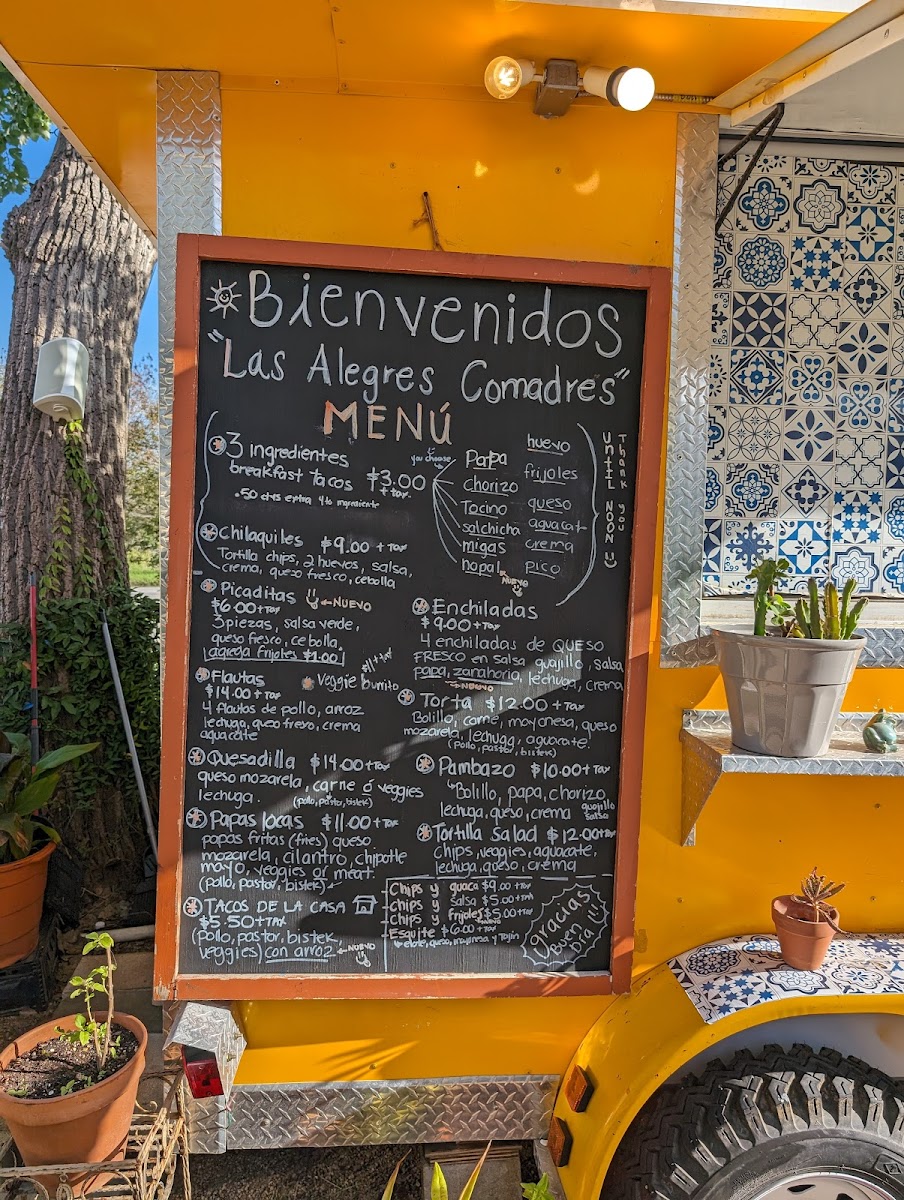 Bienvenidos
"Las Alegres Comadres"
MENÚ
3 ingredientes
breakfast tacos $3.00
+ tax
.50 ctvs extra 4to ingrediente
you choose
Papa
chorizo
Tocino
salchicha
migas
nopal
NUEVO
huevo
frijoles
queso
aguacate
crema
pico
Thank you
UNTIL NOON
Chilaquiles $9.00 + Tax
Tortilla chips, 2 huevos, salsa,
crema, queso fresco, cebolla
Picaditas
$6.00+Tax NUEVO
3 piezas, salsa verde,
queso fresco, cebolla
agrega frijoles $1.00
Flautas
$14.00+Tax
4 flautas de pollo, arroz
lechuga, queso fresvo, crema
aguacate
Veggie burrito
$11+Tax
Quesadilla $14.00+Tax
queso mozarela, carne ó veggies
lechuga. (pollo, pastor, bistek)
Papas locas $11.00+Tax
papas fritas (fries) queso
mozarela, cilantro, chipotle
mayo, veggies or meat.
(pollo, pastor, bistek)
TACOS DE LA CASA
$5.50+TAX
(pollo, pastor, bistek
veggies) con arroz NUEVO
Enchiladas
$9.00+Tax
4 enchiladas de QUESO
FRESCO en salsa guajillo, salsa
papa, zanahoria, lechuga, crema
NUEVO
Torta $12.00+Tax
Bolillo, carne, mayonesa, queso
mozarela, lechuga, aguacate.
(pollo, pastor, bistek)
Pambazo $10.00+Tax
Bolillo, papa, chorizo
lechuga, queso, crema guajillo
salsa
Tortilla Salad $12.00+Tax
chips, veggies, aguacate,
lechuga, queso, crema
Chips y guaca $9.00+Tax
Chips y salsa $5.00+Tax
Chips y frijoles $5.00+Tax
NUEVO
-Esquite $6.00+Tax
elote, queso, mayonesa y Tajin
Gracias
Buen
Día